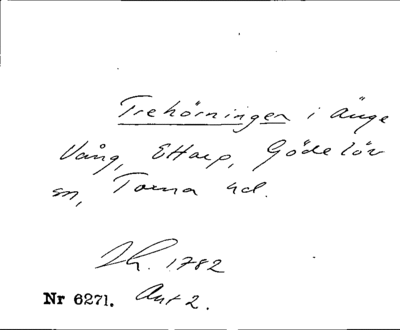 Trehörningen i Änge
Vång, Ettarp, Gödelöv
sn, Torna hd.
Lh. 1782
Nr 6271. Akt 2.